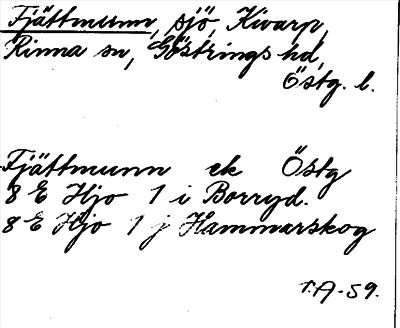 Fjättmunn, sjö, Kivarp,
Rinna sn, Göstrings hd,
Östg. l.
Fjättmunn ek Östg
8 E Hjo 1 i Borryd.
8 E Hjo 1 j Hammarskog
T.A-59.